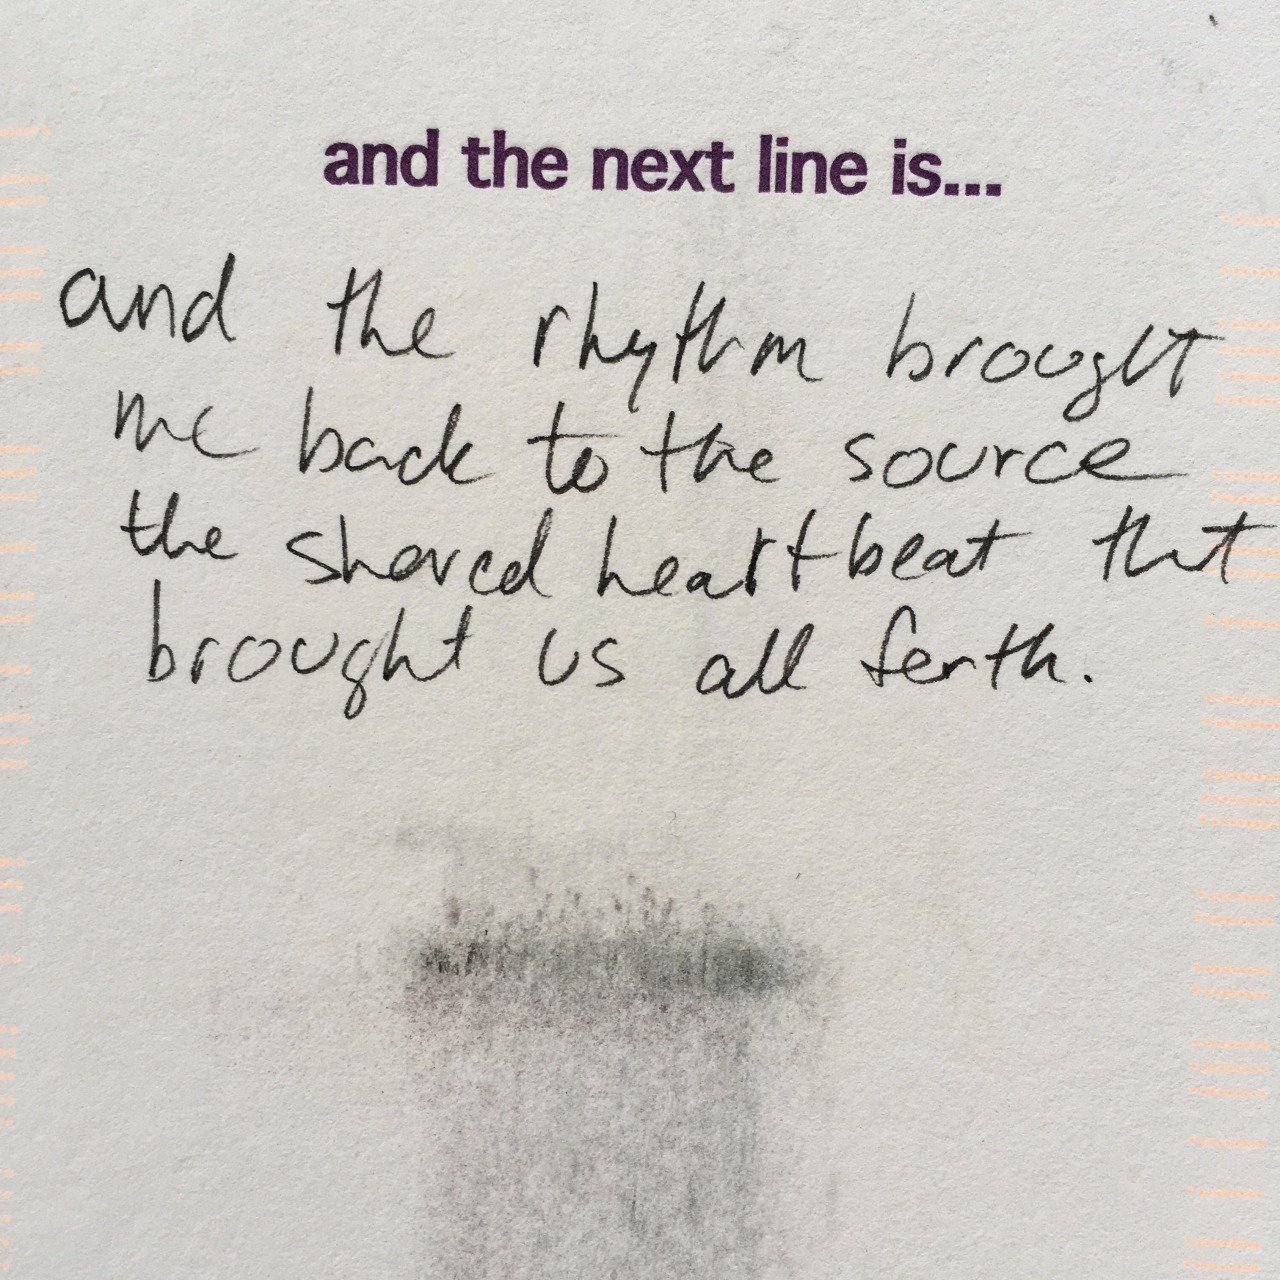 and the next line is...
and the rhythm brought
me back to the source
the shared heartbeat that
brought us all forth.